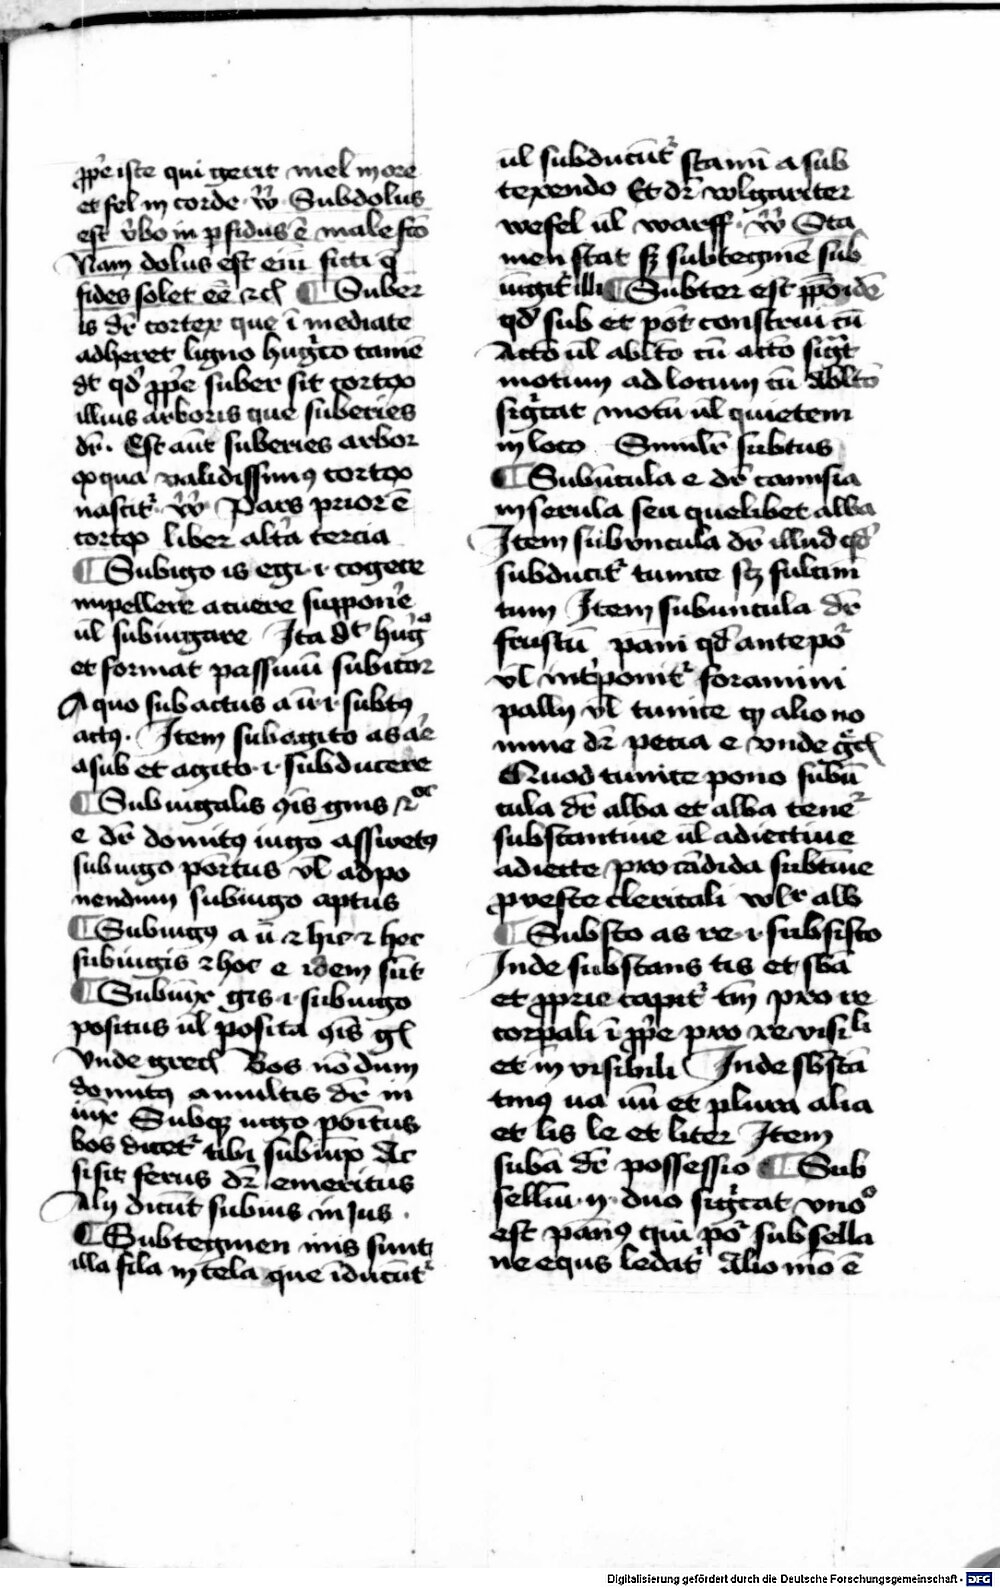 ꝓpͤ iste qui gerit mel in ore
et fel in corde · v̾ꝰ · Subdolus
est v̾bo in ꝑfidus ē male fc̄o
Nam dolus est em̄ ficti q
fides solet eē ⁊cͣ ¶ Suber
is dr̄ cortex que ī mediate
adheret ligno hug̾cō tamē
dt qd̾ ꝓpͤ suber sit cortex
illius arboris que suberies
dr̄ · Est aūt suberies arbor
ex qua validissimꝰ cortex
nascit̾ v̾ꝰ Pars prior ē
cortex liber alt̾a tercia
¶ Subigo is egi ·i· cogere
impellere acuere suppon̾e
ul̄ subiugare Ita dt hugͦ
et format passiuū subitor
A quo subactus a ū ·i· subtꝰ
actꝰ · Item subagito as ar̾e
a sub et agito ·i· subducere
¶ Subiugalis ꝯis gn̄is
e dr̄ domitꝰ iugo assuetꝰ
sub iugo portus vl̄ ad po
nendum sub iugo aptus
¶ Subiugꝰ a ū ⁊ hic ⁊ hec
subiugis ⁊ hoc e idem sūt
¶ Subiūx gis ·i· sub iugo
positus ul̄ posita ꝯis gͤ
Vnde grecͣ Bos nōdum
domitꝰ a multis dr̄ in
iūx Subqꝫ iugo poītus
bos dicet̾ tibi subiūx Ac
si sit ferus dr̄ emeritus
Alij dicūt subius in ius ·
¶ Subtegmen inis sunt
illa fila in tela que īducūt̾
ul̄ subducūt̾ stami a sub
texendo Et dr̄ wlgariter
wefel ul̄ warff · v̾ꝰ Sta
men stat sꝫ subtegmē sub
iūgit̾ illi ¶ Subter est ꝓpoīdē
qd̾ sub et pōt construi cū
Actō ul̄ abltō cū actō sigt̾
motum ad locum cū Abltō
sig̾cat motū ul̄ quietem
in loco Similr̄ subtus
¶ Subūcula e dr̄ camisia
inserula seu quelibet alba
Item subuncula dr̄ illud qd̾
subducit̾ tunice sꝫ fulcim
tum Item subuncula dr̄
frustū pāni qd̾ ante po̾
vl̄ int̾ponit̾ foramini
pallij vl̄ tunice qꝫ alio no
mine dr̄ pecia e vnde g̾cͣ
Quod tunice pono subū
cula dr̄ alba et alba tene̾
substantiue ul̄ adiectiue
adiecte pro cādida subtiue
ꝓ veste clericali wlr alb
¶ Substo as re ·i· subsisto
Inde substans tis et sb̄a
et ꝓprie capit̾ tm̄ pro re
corpali ī ꝓpͤ pro re visili
et in visibili Inde sb̄stā
tiuꝰ ua uū et plura alia
et lis le et liter Item
suba dr̄ possessio ¶ Sub
selliū ·ij· duo sig̾cat vnoͦ
est pānꝰ qui po̾ sub sella
ne equs ledat̾ Alio mō ē